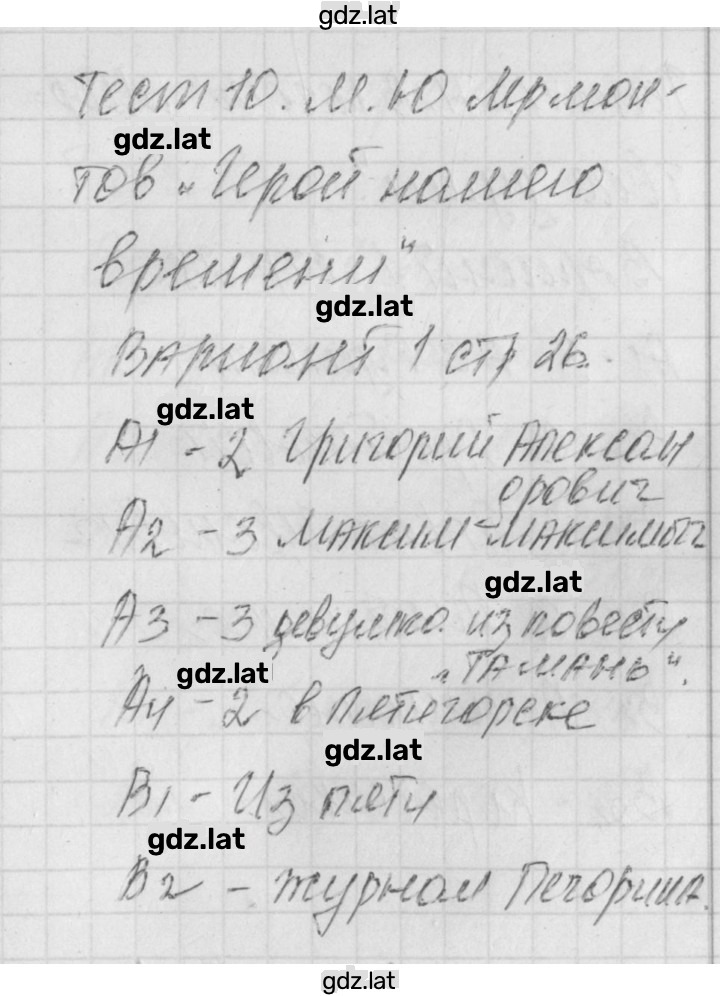 gdz.lat
Тест 10. М.Ю Лермон-
gdz.lat
тов "Герой нашего
времени"
gdz.lat
Вариант 1 стр 26.
gdz.lat
А1 - 2 Григорий Александ
рович
А2 - 3 Максим-Максимыч
gdz.lat
А3 - 3 девушка из повести
gdz.lat "Тамань".
А4 - 2 в Пятигорске
gdz.lat
В1 - Из пяти
gdz.lat
В2 - журнал Печорина.
gdz.lat